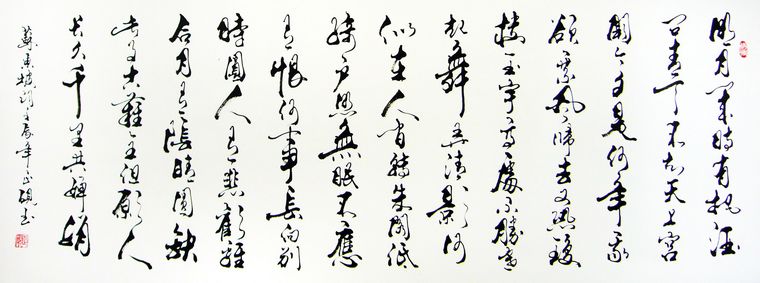 明月几時有把酒
问青天不知天上宮
闕今夕是何年我
欲乘風歸去又恐瓊
楼玉宇高處不勝寒
起舞弄清影何
似在人间轉朱閣低
綺户照無眠不應
有恨何事長向别
時圓人有悲歡離
合月有陰晴圓缺
此事古難全但願人
長久千里共嬋娟
蘇東坡詞壬辰年